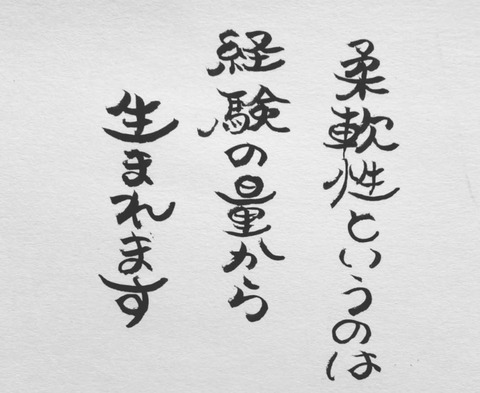 柔軟性というのは
経験の量から
生まれます